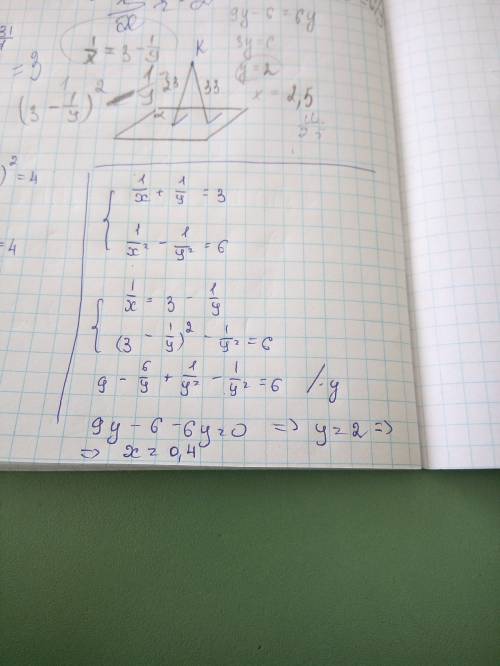 9y - 6 = 6y
1/x = 3 - 1/y
K
3y = 6
= 3
y = 2
(3 - 1/y)²
33
x = 2,5
)² = 4
{ 1/x + 1/y = 3
1/x² - 1/y² = 6
= 4
{ 1/x = 3 - 1/y
(3 - 1/y)² - 1/y² = 6
9 - 6/y + 1/y² - 1/y² = 6 /·y
9y - 6 - 6y = 0 => y = 2 =>
=> x = 0,4